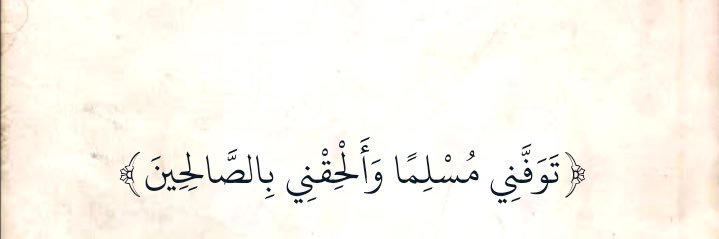 ﴿تَوَفَّنِي مُسْلِمًا وَأَلْحِقْنِي بِالصَّالِحِينَ﴾